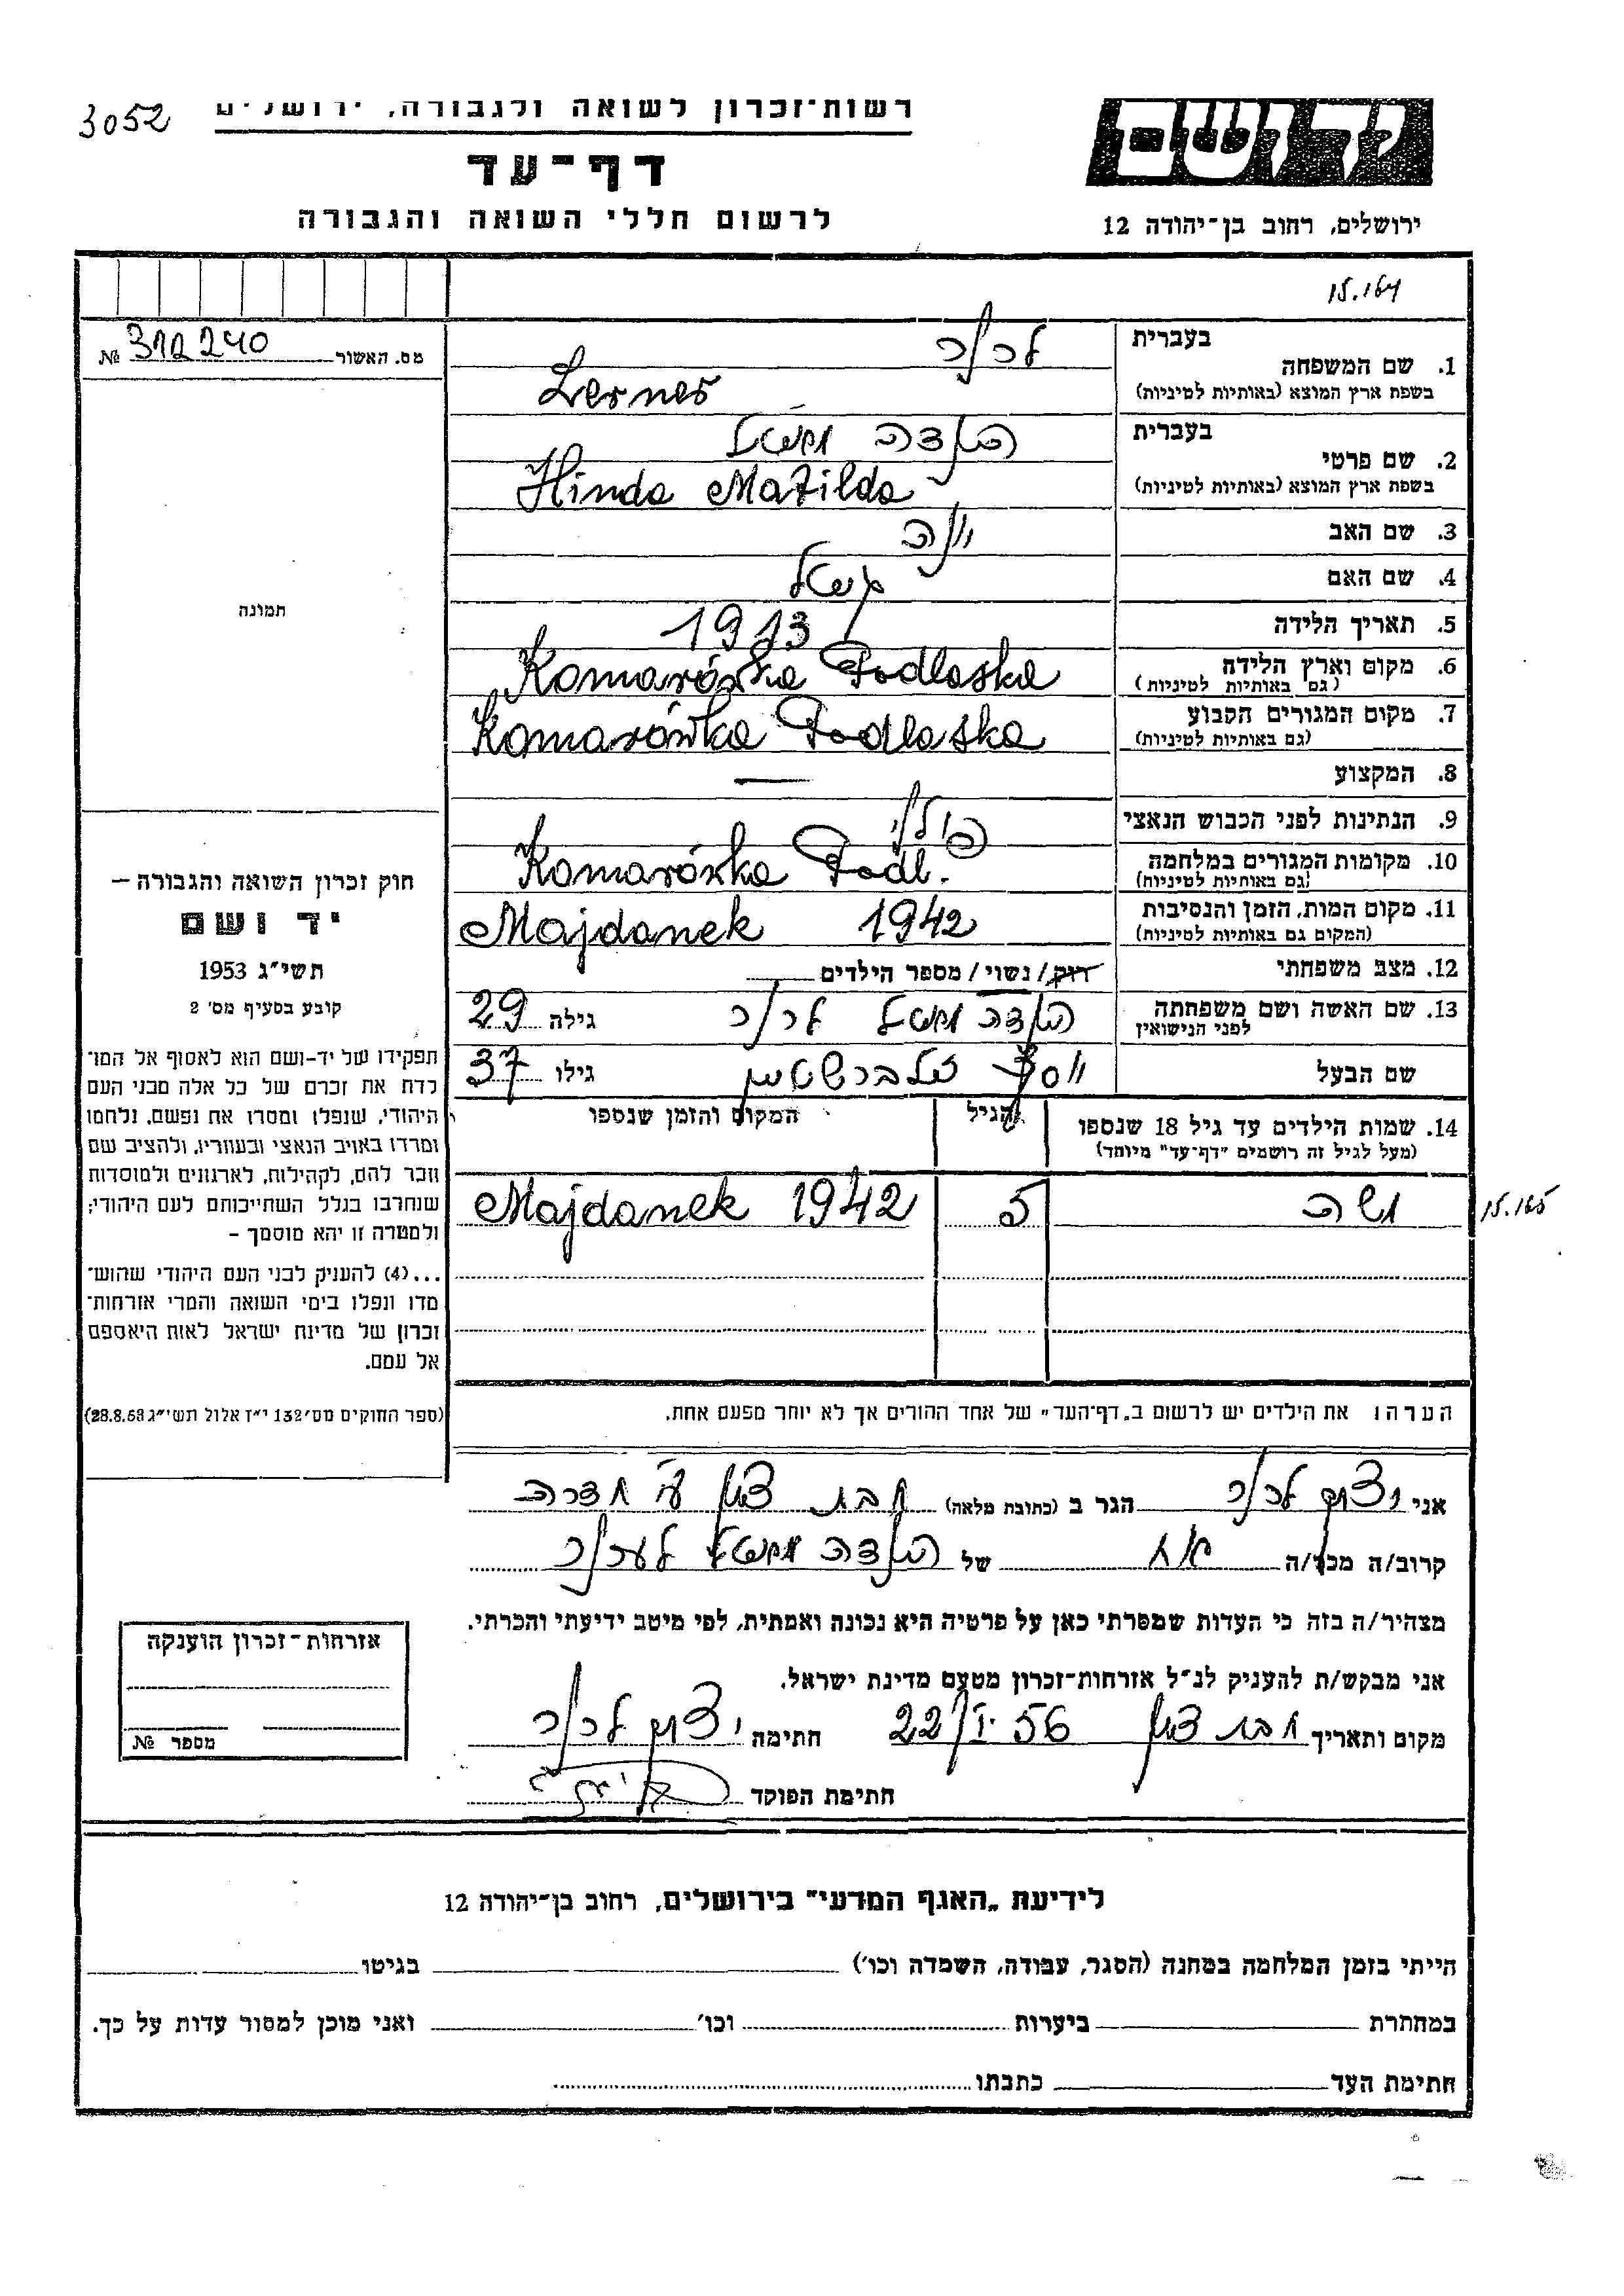 3052
רשות־זכרון לשואה ולגבורה, ירושלים
יד ושם
דף־עד
לרשום חללי השואה והגבורה
ירושלים, רחוב בן־יהודה 12
מס. האשור 312240 №
בעברית לרנר
1. שם המשפחה
בשפת ארץ המוצא (באותיות לטיניות) Lerner
בעברית הינדה
2. שם פרטי
בשפת ארץ המוצא (באותיות לטיניות) Hinda Matilda
3. שם האב יונה
4. שם האם
5. תאריך הלידה 1913
6. מקום וארץ הלידה Komarówka Podlaska
(גם באותיות לטיניות)
7. מקום המגורים הקבוע Komarówka Podlaska
(גם באותיות לטיניות)
8. המקצוע —
9. הנתינות לפני הכבוש הנאצי פולני
10. מקומות המגורים במלחמה Komarówka Podl.
(גם באותיות לטיניות)
11. מקום המות, הזמן והנסיבות Majdanek 1942
(המקום גם באותיות לטיניות)
12. מצב משפחתי רוק/נשוי/מספר הילדים
13. שם האשה ושם משפחתה הינדה לרנר גילה 29
לפני הנישואין
שם הבעל יוסף זילברשטיין גילו 37
14. שמות הילדים עד גיל 18 שנספו הגיל המקום והזמן שנספו
(מעל לגיל זה רושמים "דף־עד" מיוחד)
משה 5 Majdanek 1942
הערה: את הילדים יש לרשום ב„דף־העד" של אחד ההורים אך לא יותר מפעם אחת.
תמונה
חוק זכרון השואה והגבורה —
יד ושם
תשי״ג 1953
קובע בסעיף מס׳ 2
תפקידו של יד-ושם הוא לאסוף אל המו־
לדת את זכרם של כל אלה מבני העם
היהודי, שנפלו ומסרו את נפשם, נלחמו
ומרדו באויב הנאצי ובעוזריו, ולהציב שם
וזכר להם, לקהילות, לארגונים ולמוסדות
שנחרבו בגלל השתייכותם לעם היהודי;
ולמטרה זו יהא מוסמך –
...(4) להעניק לבני העם היהודי שהוש־
מדו ונפלו בימי השואה והמרי אזרחות־
זכרון של מדינת ישראל לאות היאספם
אל עמם.
(ספר החוקים מס׳ 132 י״ז אלול תשי״ג 28.8.53)
אני לרנר הגר ב (כתובת מלאה)
קרוב/ה מכר/ה אח של הינדה לערנר
מצהיר/ה בזה כי העדות שמסרתי כאן על פרטיה היא נכונה ואמתית, לפי מיטב ידיעתי והכרתי.
אני מבקש/ת להעניק לנ״ל אזרחות־זכרון מטעם מדינת ישראל.
מקום ותאריך 56 חתימה לרנר
חתימת הפוקד
אזרחות־זכרון הוענקה
מספר №
לידיעת „האגף המדעי" בירושלים, רחוב בן־יהודה 12
הייתי בזמן המלחמה במחנה (הסגר, עבודה, השמדה וכו׳) בגיטו
במחתרת ביערות וכו׳ ואני מוכן למסור עדות על כך.
חתימת העד כתבתו